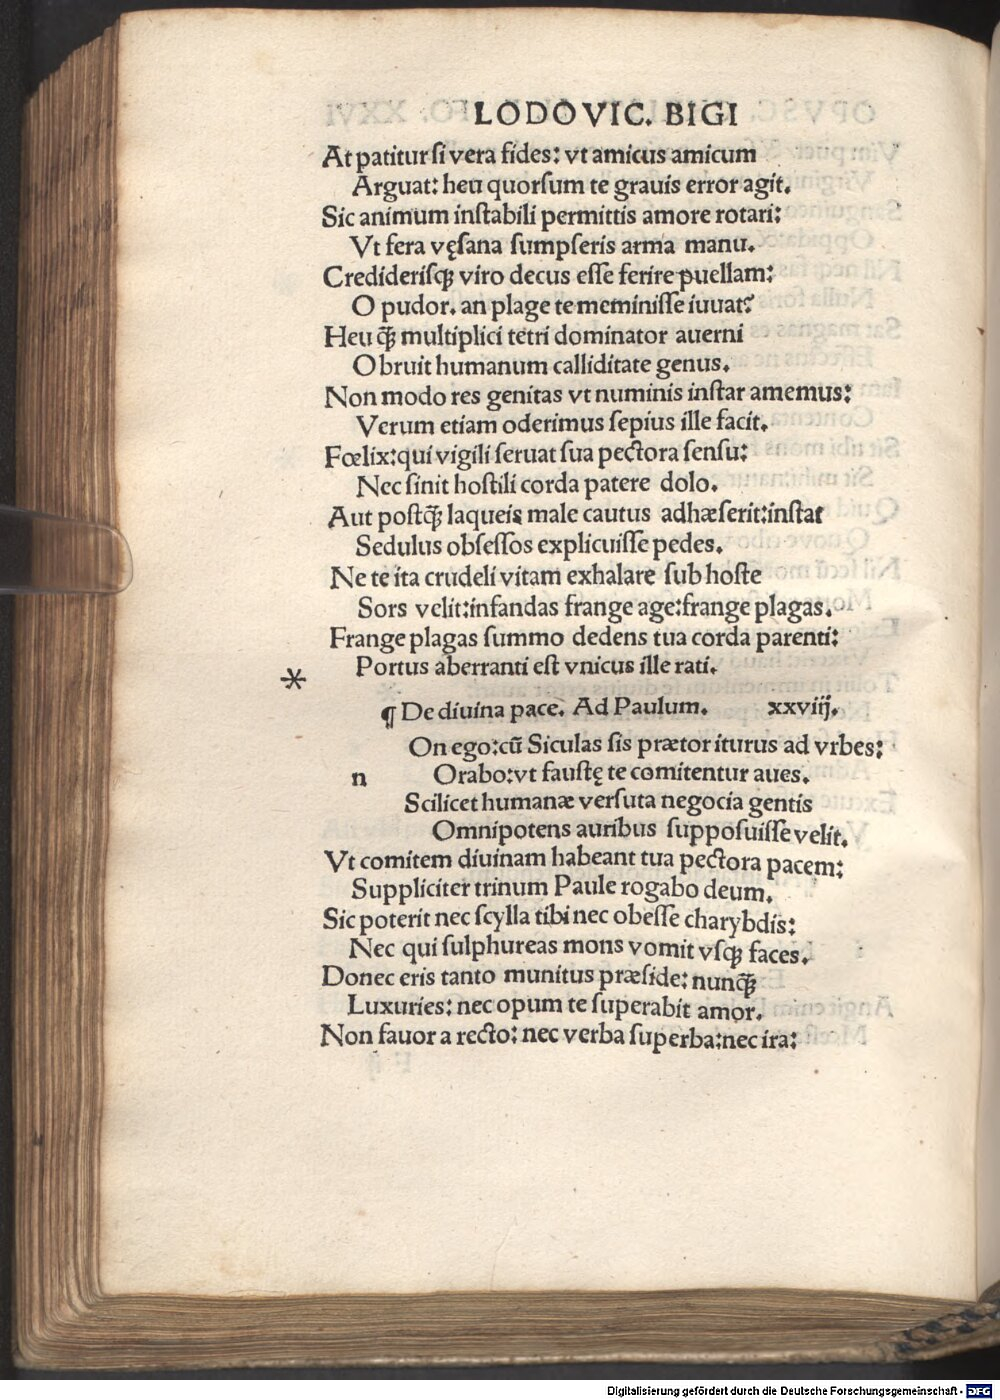 LODOVIC. BIGI
At patitur ſi vera fides: vt amicus amicum
Arguat: heu quorſum te grauis error agit.
Sic animum inſtabili permittis amore rotari:
Vt fera vęſana ſumpſeris arma manu.
Crediderisq̃ viro decus eſſe ferire puellam:
O pudor. an plage te meminiſſe iuuat?
Heu q̃ multiplici tetri dominator auerni
Obruit humanum calliditate genus.
Non modo res genitas vt numinis inſtar amemus:
Verum etiam oderimus ſepius ille facit.
Fœlix: qui vigili ſeruat ſua pectora ſenſu:
Nec ſinit hoſtili corda patere dolo.
Aut poſtq̃ laqueis male cautus adhæſerit: inſtat
Sedulus obſeſſos explicuiſſe pedes.
Ne te ita crudeli vitam exhalare ſub hoſte
Sors velit: infandas frange age: frange plagas.
Frange plagas ſummo dedens tua corda parenti:
Portus aberranti eſt vnicus ille rati.
*
¶ De diuina pace. Ad Paulum. xxviij.
n On ego: cũ Siculas ſis prætor iturus ad vrbes:
Orabo: vt fauſtę te comitentur aues.
Scilicet humanæ verſuta negocia gentis
Omnipotens auribus ſuppoſuiſſe velit.
Vt comitem diuinam habeant tua pectora pacem:
Suppliciter trinum Paule rogabo deum.
Sic poterit nec ſcylla tibi nec obeſſe charybdis:
Nec qui ſulphureas mons vomit vſq̃ faces.
Donec eris tanto munitus præſide: nunq̃
Luxuries: nec opum te ſuperabit amor.
Non fauor a recto: nec verba ſuperba: nec ira:
Digitalisierung gefördert durch die Deutsche Forschungsgemeinschaft - DFG